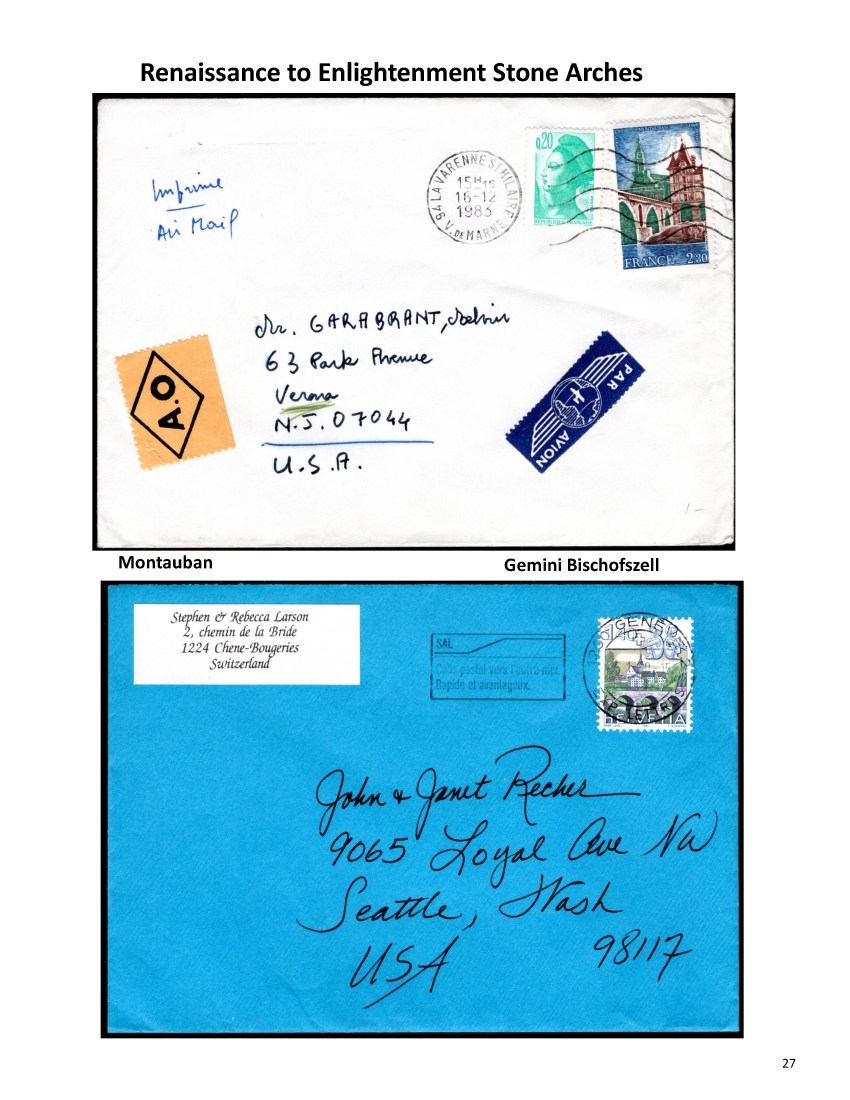 Renaissance to Enlightenment Stone Arches
Imprimé
Air Mail
94 LA VARENNE ST HILAIRE
15H15
16-12
1983
V. DE MARNE
0,20
REPUBLIQUE FRANCAISE
FRANCE 2.30
Mr. GARABRANT, Melvin
63 Park Avenue
Verona
N.J. 07044
U.S.A.
A.O
PAR AVION
Montauban
Gemini Bischofszell
Stephen & Rebecca Larson
2, chemin de la Bride
1224 Chene-Bougeries
Switzerland
SAL
Colis postal vers l'outre-mer.
Rapide et avantageux.
GENÈVE
HELVETIA
John & Janet Recher
9065 Loyal Ave NW
Seattle, Wash
98117
USA
27